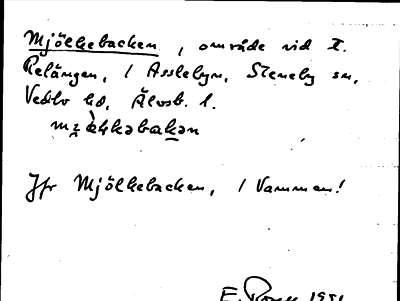 Mjölkebacken, område vid I.
Relången, 1 Asslebyn, Steneby sn,
Vedbo hd, Älvsb. l.
Jfr Mjölkebacken, 1 Vammen!
E. 1951